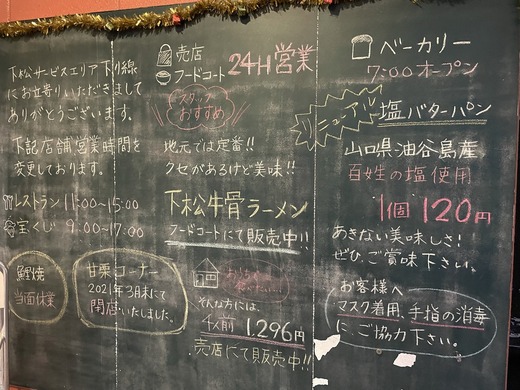 下松サービスエリア下り線
にお立寄りいただきまして
ありがとうございます。
下記店舗営業時間を
変更しております。
レストラン 11:00~15:00
宝くじ 9:00~17:00
鯛焼
当面休業
甘栗コーナー
2021年3月末にて
閉店いたしました。
売店
フードコート
24H営業
スタッフ
おすすめ
地元では定番!!
クセがあるけど美味!!
下松牛骨ラーメン
フードコートにて販売中!!
おうちで
食べたい
そんな方には、
4人前 1,296円
売店にて販売中!!
ベーカリー
7:00オープン
リニューアル
塩バターパン
山口県油谷島産
百姓の塩使用
1個120円
あきない美味しさ!
ぜひ、ご賞味下さい。
お客様へ
マスク着用、手指の消毒
に、ご協力下さい。